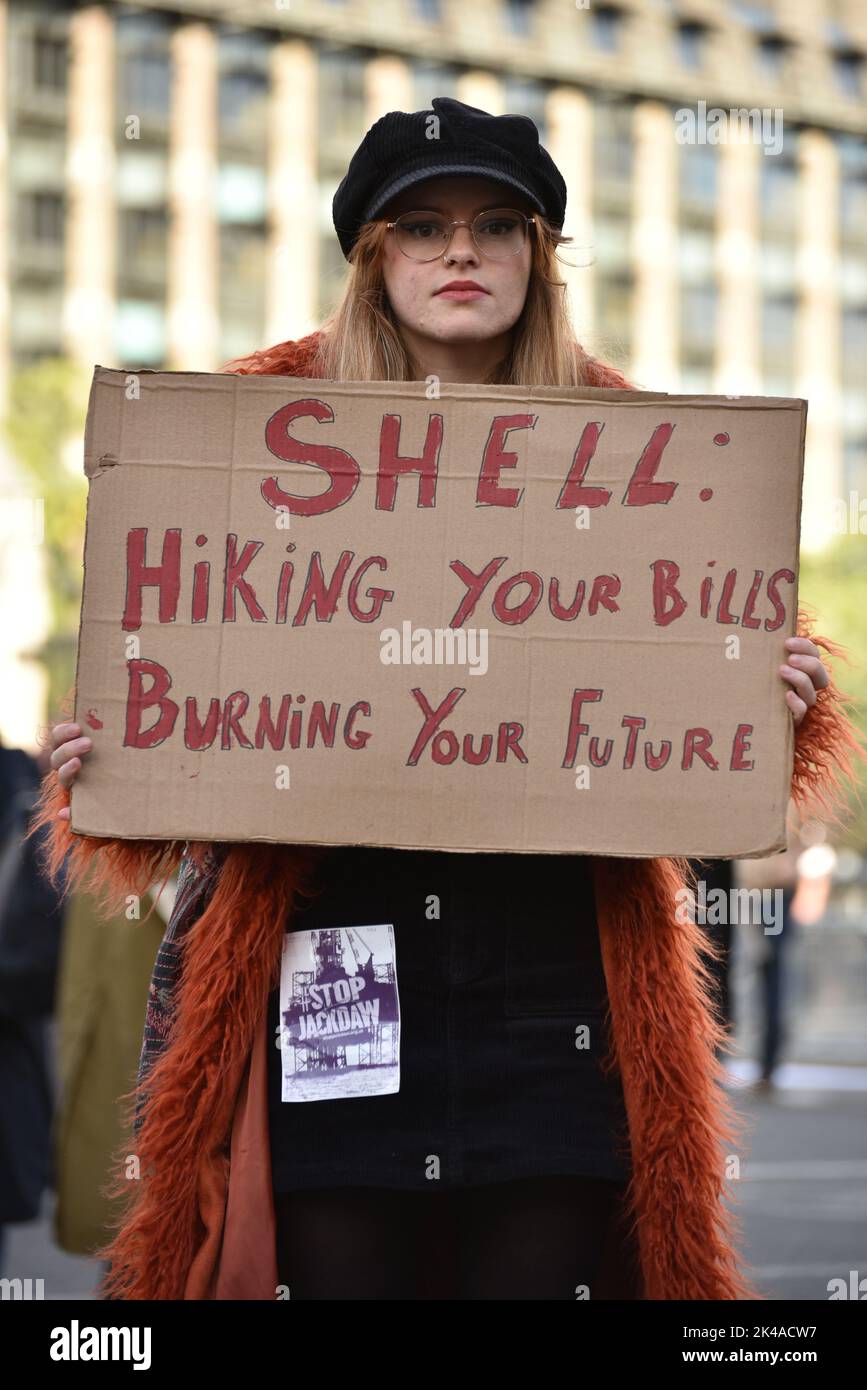 SHELL:
HiKiNg YOUR BillS
BURNiNg YOUR FUTURE
#STOP
JACKDAW
alamy
Image ID: 2K4ACW7
www.alamy.com